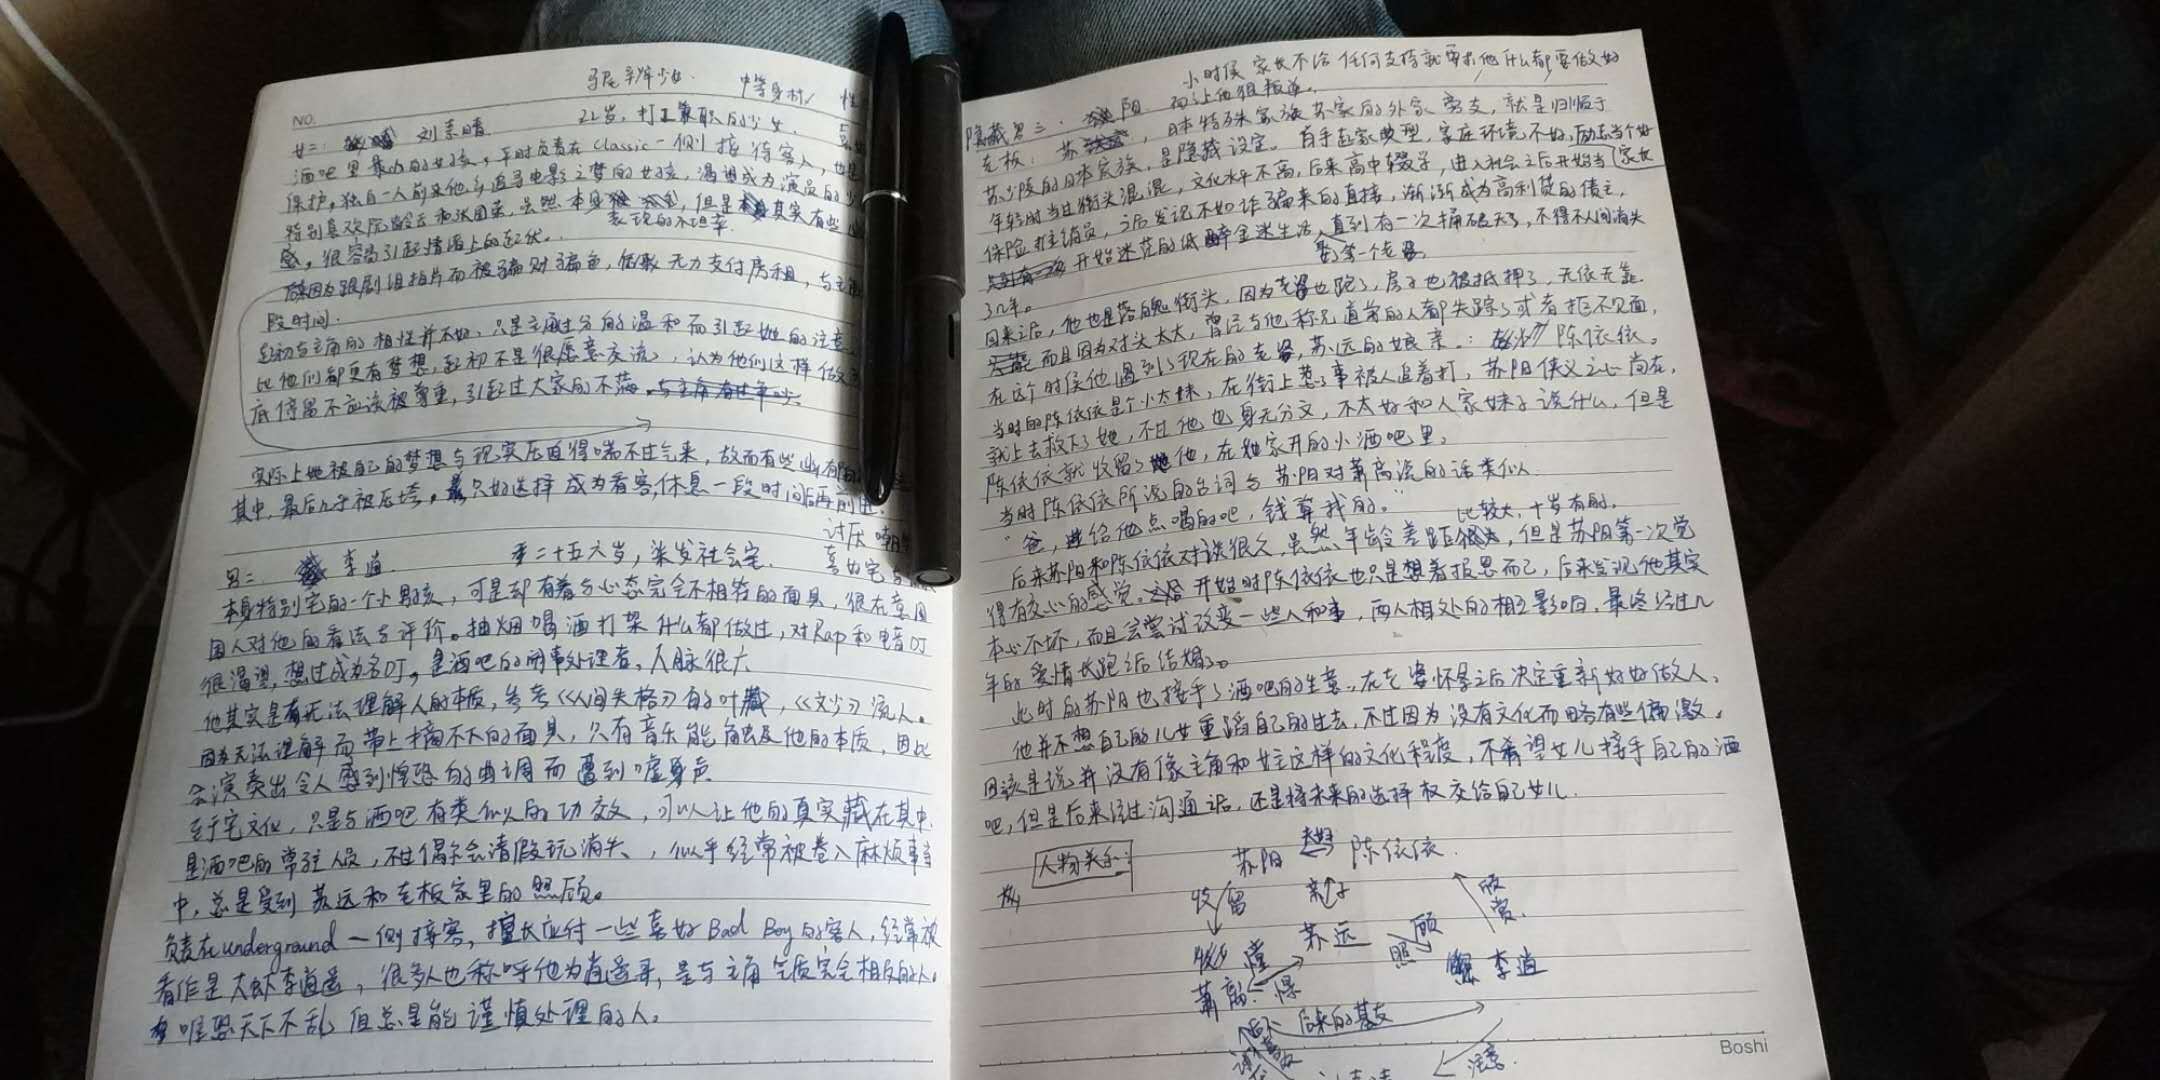 NO.
马尾辫少女. 中等身材 性
女二: 刘素晴 22岁,打工兼职的少女. 喜
酒吧里最小的女孩,平时负责在classic一侧接待客人,也是
保护,独自一人前来他乡追寻电影之梦的女孩,渴望成为演员的少
特别喜欢阮玲玉和张国荣,虽然本身 但是其实有些
表现的不坦率
感,很容易引起情绪上的起伏.
因为跟剧组拍片而被骗财骗色,低歌无力支付房租,与主
段时间.
起初与主角的相性并不好,只是主角过分的温和而引起她的注意
比他们都更有梦想,起初不是很愿意交流,认为他们这样做
底停留不应该被尊重,引起过大家的不满。
实际上她被自己的梦想与现实压迫得喘不过气来,故而有些
其中,最后几乎被压垮,只好选择成为看客,休息一段时间后再前进.
讨厌
男二. 李逍 二十五六岁,染发社会宅. 喜如宅
本身特别宅的一个小男孩,可是却有着与心态完全不相符的面具,很在意周
围人对他的看法与评价。抽烟喝酒打架什么都做过,对Rap和电音DJ
很渴望,想过成为名DJ,是酒吧的闹事处理者,人脉很大
他其实是有无法理解人的本质,参考《人间失格》的叶藏,《文少》流人。
因为无法理解而带上摘不下的面具,只有音乐能触及他的本质,因此
会演奏出令人感到惶恐的曲调而遭到嘘声
至于宅文化,只是与酒吧有类似的功效,可以让他的真实藏在其中.
是酒吧的常驻人员,不过偶尔会请假玩消失,似乎经常被卷入麻烦事当
中,总是受到苏远和老板家里的照顾。
负责在underground一侧接客,擅长应付一些喜好Bad Boy的客人,经常被
看作是大叔李逍遥,很多人也称呼他为逍遥哥,是与主角气质完全相反的人.
唯恐天下不乱但总是能谨慎处理的人。
小时候家长不给任何支持就要求他什么都要做好
而让他很叛逆。
隐藏男三. 阳
老板: 苏 ,日本特殊家族苏家的外家旁支,就是归顺于
苏少陵的日本家族,是隐藏设定。白手起家典型,家庭环境不好,励志当个好
家长
年轻时当过街头混混,文化水平不高,后来高中辍学,进入社会之后开始当
保险推销员,之后发现不如诈骗来的直接,渐渐成为高利贷的债主,
开始迷茫的纸醉金迷生活,直到有一次捅破天了,不得不人间消失
娶第一个老婆
3年。
回来之后,他也是落魄街头,因为老婆也跑了,房子也被抵押了,无依无靠
而且因为对头太大,曾经与他称兄道弟的人都失踪了或者拒不见面,
在这个时候他遇到了现在的老婆,苏远的娘亲。: 陈依依。
当时的陈依依是个小太妹,在街上惹了事被人追着打,苏阳侠义之心尚在,
就上去救下了她,不过他也身无分文,不太好和人家妹子说什么,但是
陈依依就收留了他,在她家开的小酒吧里,
当时陈依依所说的台词与苏阳对萧离说的话类似.
“爸,给他点喝的吧,钱算我的。” 比较大,十岁有的,
后来苏阳和陈依依对谈很久,虽然年龄差距 ,但是苏阳第一次觉
得有交心的感觉。开始时陈依依也只是想着报恩而已,后来发现他其实
本心不坏,而且会尝试改变一些人和事,两人相处的相互影响,最终经过几
年的爱情长跑之后结婚了。
此时的苏阳也接手了酒吧的生意,在老婆怀孕之后决定重新好好做人,
他并不想自己的儿女重蹈自己的过去,不过因为没有文化而略有些偏激,
因该是说并没有像主角和女主这样的文化程度,不希望女儿接手自己的酒
吧,但是后来经过沟通之后,还是将未来的选择权交给自己女儿.
人物关系:
苏阳 夫妇 陈依依.
收留 亲子 欣赏
苏远 照顾 李逍
萧离
后来的基友
注意.
Boshi